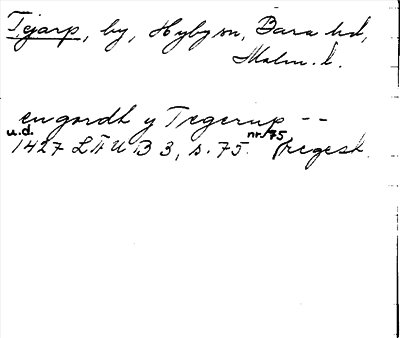 Tejarp, by, Hyby sn, Bara hd,
Malm. l.
en gardh y Tegerup --
u.d. nr. 75,
1427 LÄUB 3, s. 75. (regest.